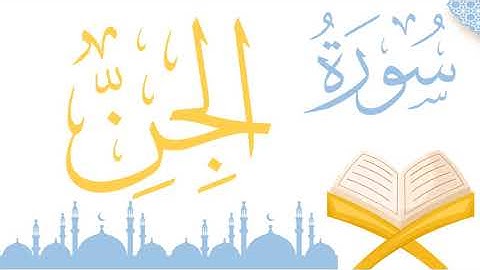 سُورَةُ
الْجِنِّ